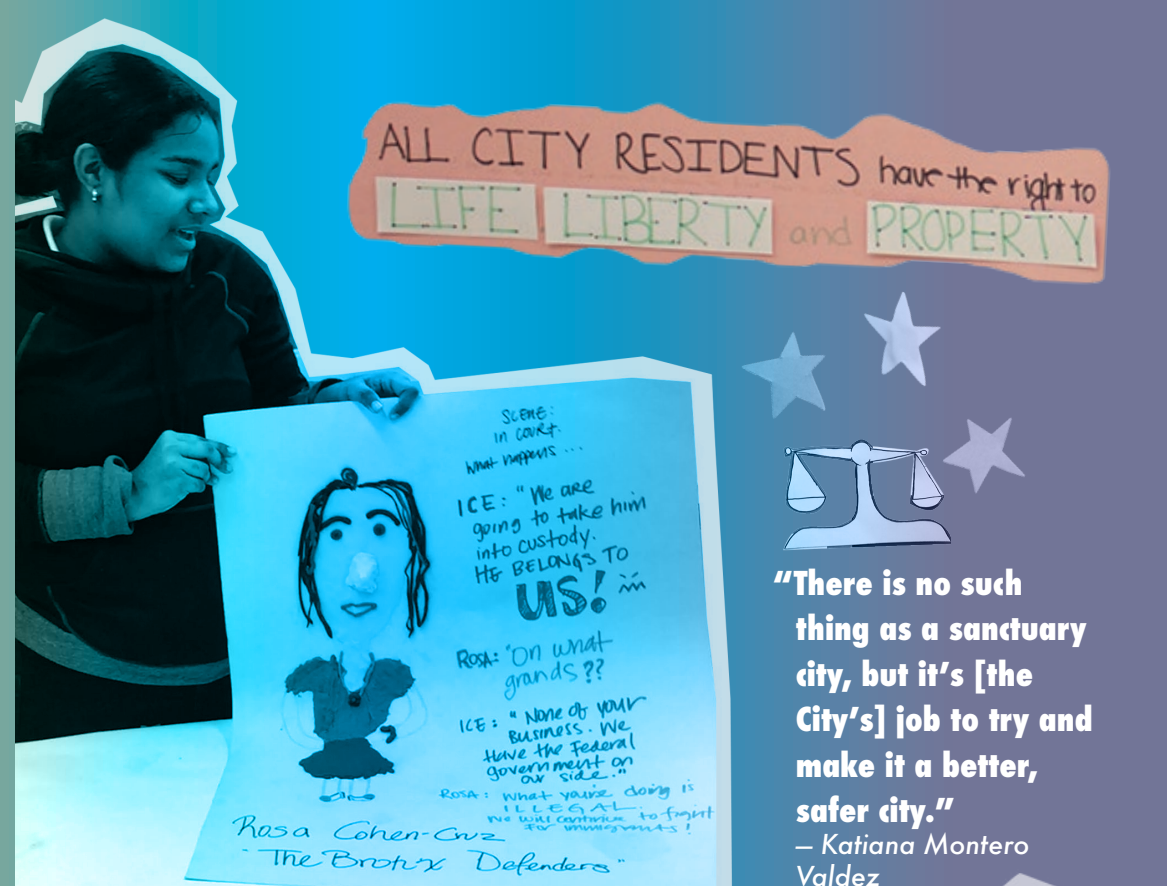 ALL CITY RESIDENTS have the right to
LIFE LIBERTY and PROPERTY
SCENE:
in court.
what happens ...
ICE: "We are
going to take him
into custody.
HE BELONGS TO
US!
ROSA: "On what
grands??
ICE: "None of your
Business. We
Have the Federal
government on
our side."
ROSA: What you're doing is
ILLEGAL.
We will continue to fight
for immigrants!
Rosa Cohen-Cruz
"The Bronx Defenders"
“There is no such
thing as a sanctuary
city, but it’s [the
City’s] job to try and
make it a better,
safer city.”
– Katiana Montero
Valdez